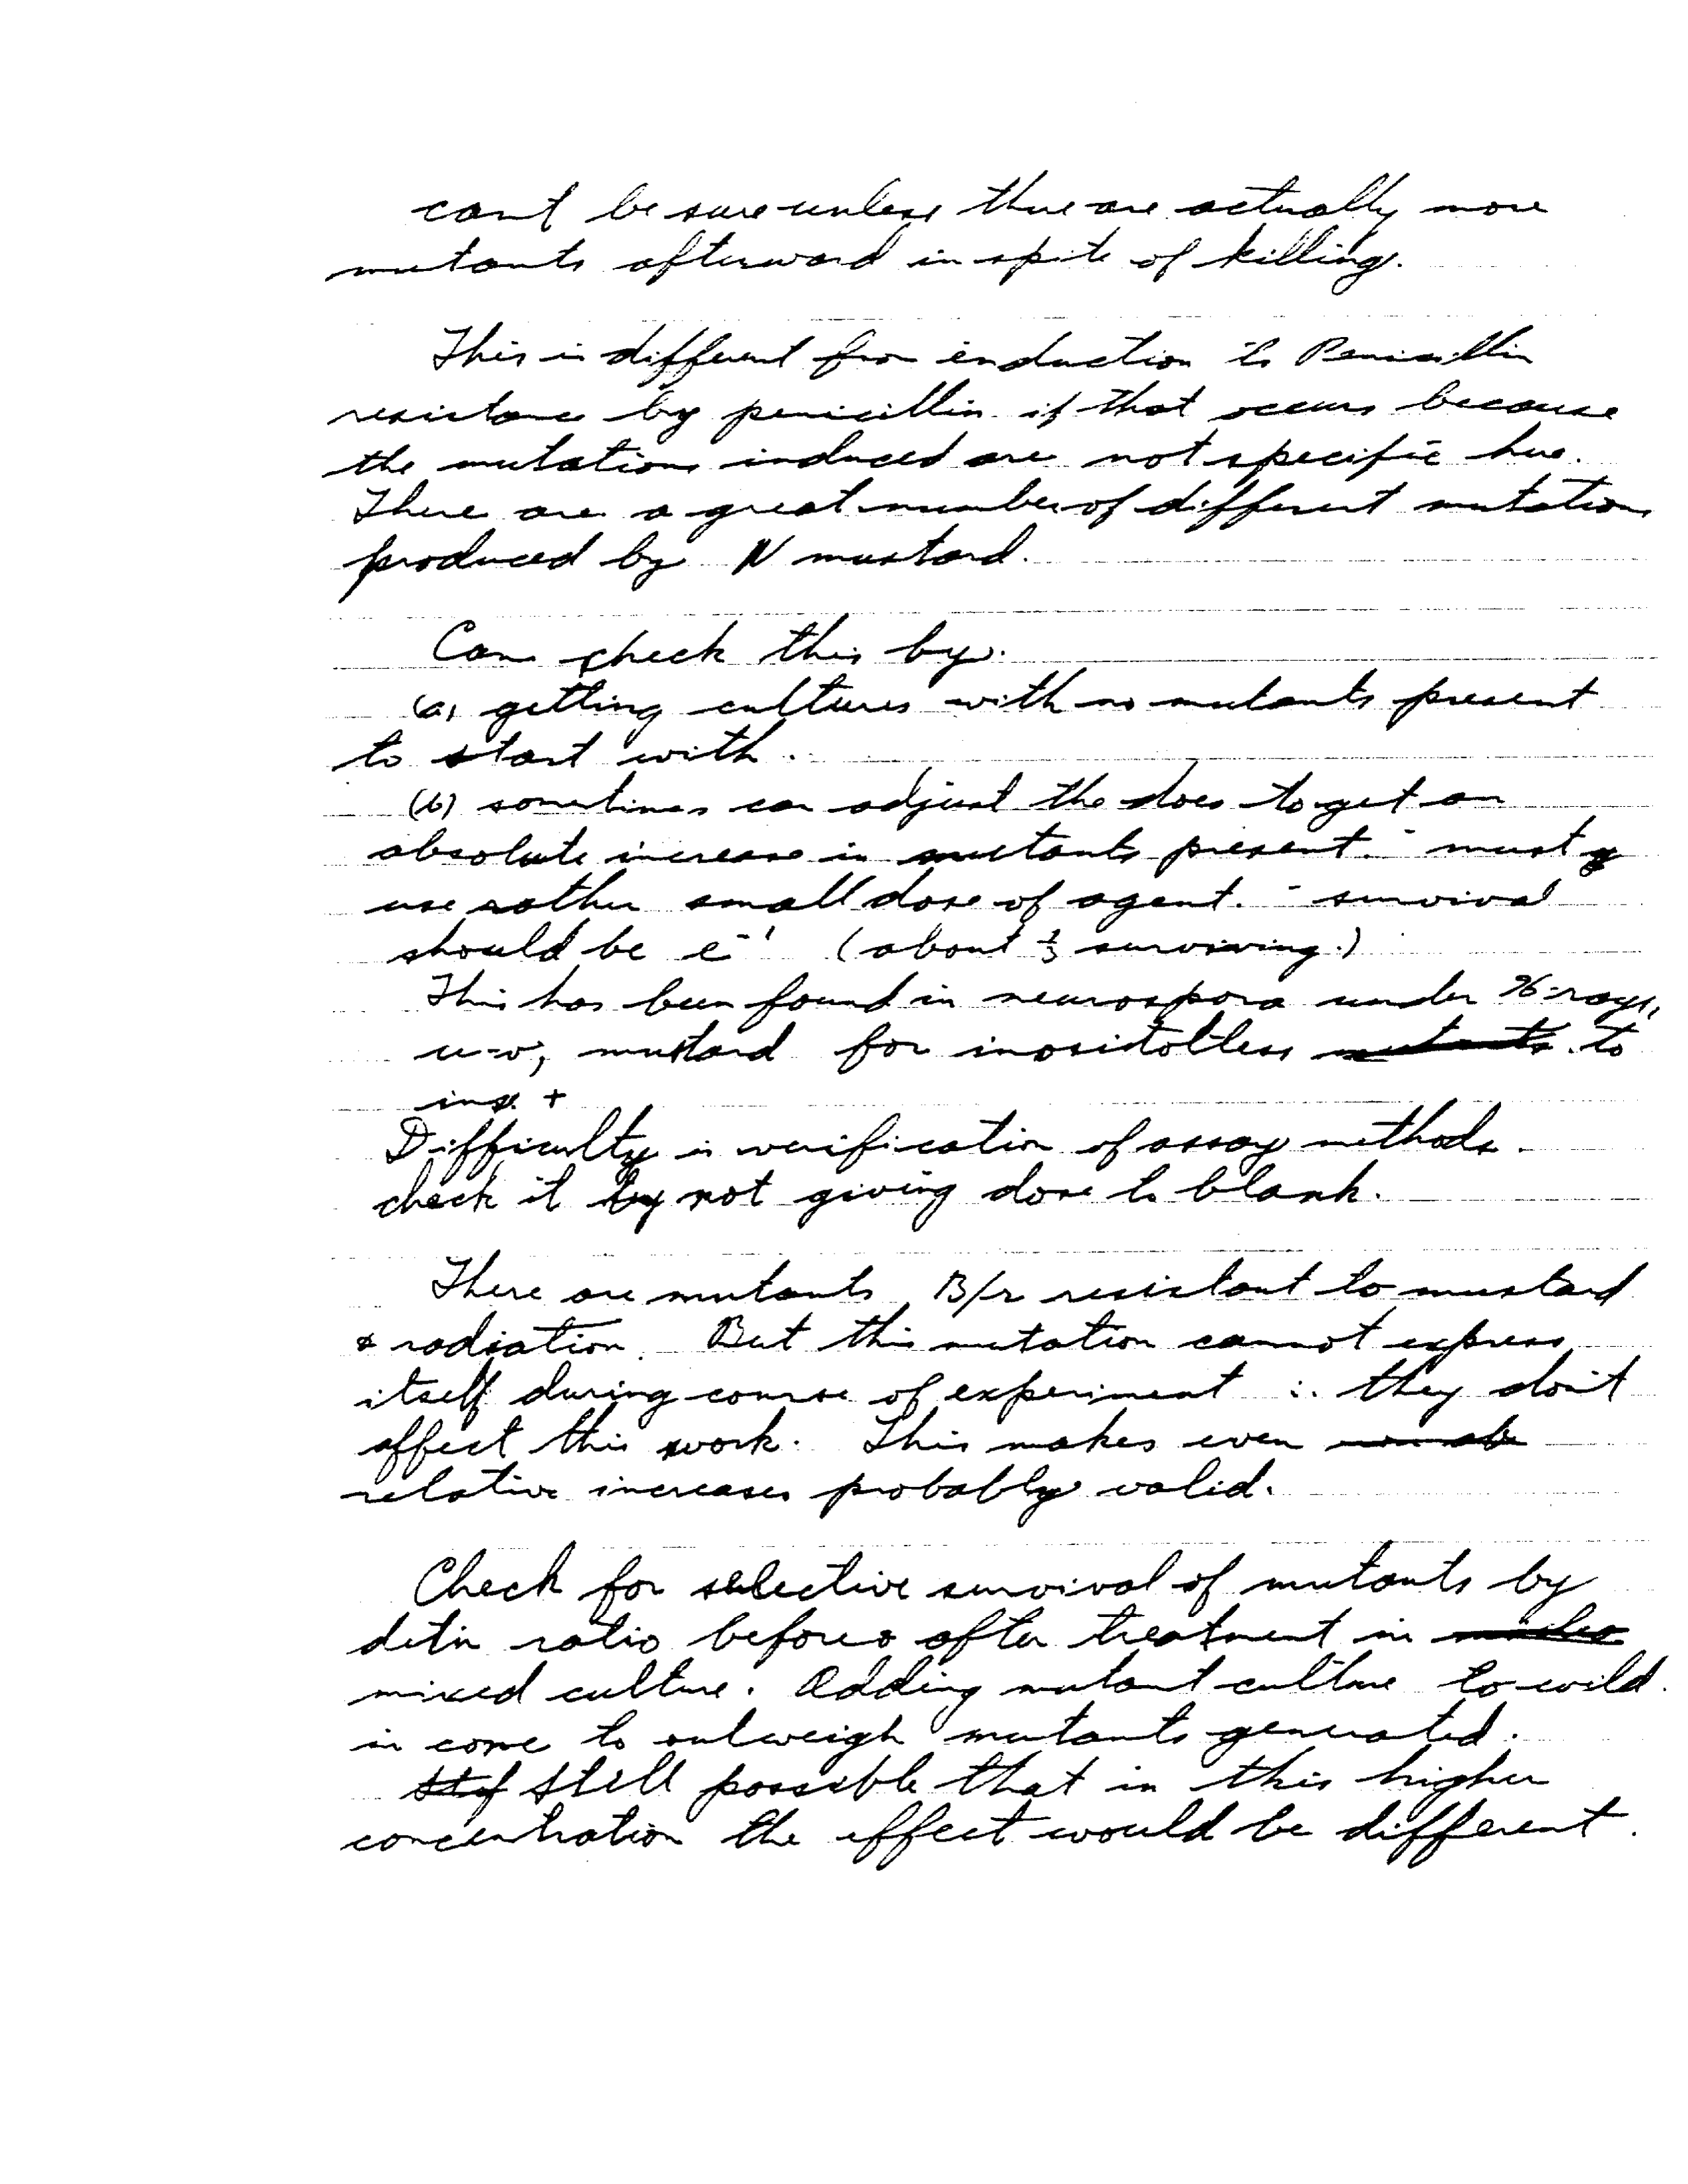 can't be sure unless there are actually more
mutants afterward in spite of killing.
This is different from induction to Penicillin
resistance by penicillin if that occurs because
the mutations induced are not specific here.
There are a great number of different mutations
produced by N mustard.
Can check this by.
(a) getting cultures with no mutants present
to start with.
(b) sometimes can adjust the does to get an
absolute increase in mutants present. - must
use rather small dose of agent. - survival
should be e⁻¹ (about ⅓ surviving.)
This has been found in neurospora under X-rays,
u-v, mustard for inositolless to
ins. +
Difficulty is verification of assay methods.
check it by not giving dose to blank.
There are mutants B/r resistant to mustard
& radiation. But this mutation cannot express
itself during course of experiment ∴ they don't
affect this work. This makes even
relative increases probably valid.
Check for selective survival of mutants by
detn ratio before & after treatment in
mixed culture. Adding mutant culture to wild
in conc to outweigh mutants generated.
Still possible that in this higher
concentration the effect would be different.